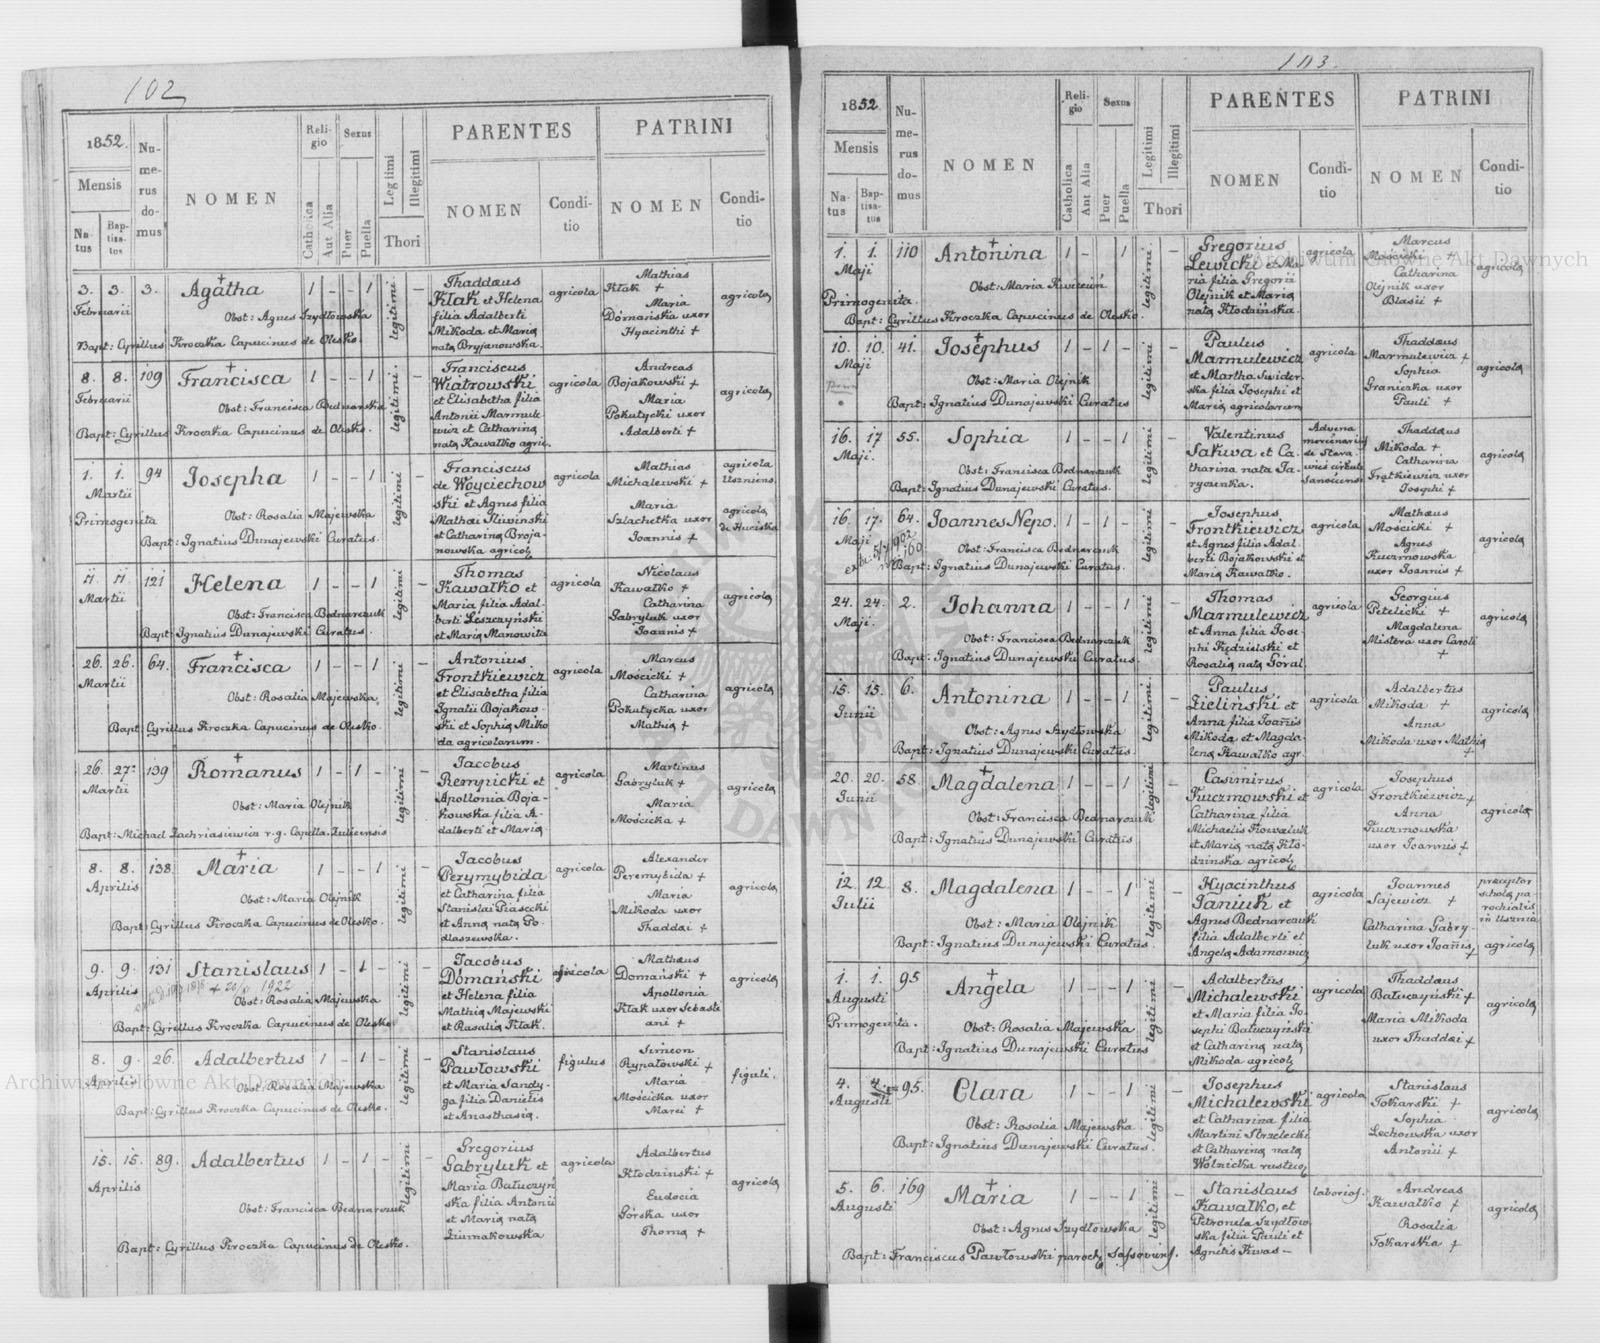 102
1852.
Mensis
Natus
Baptisatus
Numerus domus
NOMEN
Religio
Catholica
Aut Alia
Sexus
Puer
Puella
Legitimi
Illegitimi
Thori
PARENTES
NOMEN
Conditio
PATRINI
NOMEN
Conditio
3. 3. 3. Agatha 1 - - 1 legitimi -
Februarii
Obst: Agnes Szydłowska
Bapt: Cyrillus Kroczka Capucinus de Olesko.
Thaddæus
Kłak et Helena
filia Adalberti
Mikoda et Maria
nata Bryjanowska.
agricola
Mathias
Kłak +
Maria
Domańska uxor
Hyacinthi +
agricola
8. 8. 109 Francisca 1 - - 1 legitimi -
Februarii
Obst: Francisca Bednarska
Bapt: Cyrillus Kroczka Capucinus de Olesko.
Franciscus
Wiatrowski
et Elisabetha filia
Antonii Marmule
wicz et Catharina
nata Kawałko agric.
agricola
Andreas
Bojakowski +
Maria
Pokutycki uxor
Adalberti +
agricola
1. 1. 94 Josepha 1 - - 1 legitimi -
Martii
Primogenita
Obst: Rosalia Majewska
Bapt: Ignatius Dunajewski Curatus.
Franciscus
de Woyciechow
ski et Agnes filia
Mathæi Śliwinski
et Catharina Broja-
nowska agricol.
agricola
Mathias
Michalewski +
Maria
Szlachetka uxor
Joannis +
agricola
Uszniens.
agricola
de Huciska
11. 11. 121 Helena 1 - - 1 legitimi -
Martii
Obst: Francisca Bednarczuk
Bapt: Ignatius Dunajewski Curatus.
Thomas
Kawałko et
Maria filia Adal-
berti Leszczyński
et Maria Manowita
agricola
Nicolaus
Kawałko +
Catharina
Gabryluk uxor
Joannis +
agricola
26. 26. 64. Francisca 1 - - 1 legitimi -
Martii
Obst: Rosalia Majewska
Bapt: Cyrillus Kroczka Capucinus de Olesko.
Antonius
Frontkiewicz
et Elisabetha filia
Ignatii Bojakow-
ski et Sophia Miko
da agricolarum.
agricola
Marcus
Mościcki +
Catharina
Pokutycka uxor
Mathia +
agricola
26. 27. 139 Romanus 1 - 1 - legitimi -
Martii
Obst: Maria Olejnik
Bapt: Michael Zachriasiewicz r.g. Capella. Zulicensis
Jacobus
Rempicki et
Apollonia Boja-
kowska filia A-
dalberti et Maria.
agricola
Martinus
Gabryluk +
Maria
Mościcka +
agricola
8. 8. 138 Maria 1 - - 1 legitimi -
Aprilis
Obst: Maria Olejnik
Bapt: Cyrillus Kroczka Capucinus de Olesko.
Jacobus
Perzymybida
et Catharina filia
Stanislai Piasecki
et Anna nata Po-
dlaszewska.
agricola
Alexander
Peremybida +
Maria
Mikoda uxor
Thaddæi +
agricola
9. 9. 131 Stanislaus 1 - 1 - legitimi -
Aprilis
+ 20/ 1922
Obst: Rosalia Majewska
Bapt: Cyrillus Kroczka Capucinus de Olesko
Jacobus
Domański
et Helena filia
Mathia Majewski
et Rosalia Kłak.
agricola
Mathæus
Domański +
Apollonia
Kłak uxor Sebasti
ani +
agricola
8. 9. 26. Adalbertus 1 - 1 - legitimi -
Aprilis
Obst: Rosalia Majewska
Bapt: Cyrillus Kroczka Capucinus de Olesko.
Stanislaus
Pawłowski
et Maria Sandy-
ga filia Danielis
et Anasthasia.
figulus
Simeon
Rypałowski +
Maria
Mościcka uxor
Marci +
figuli.
15. 15. 89. Adalbertus 1 - 1 - legitimi -
Aprilis
Obst: Francisca Bednarczuk
Bapt: Cyrillus Kroczka Capucinus de Olesko.
Gregorius
Gabryluk et
Maria Bałuczyn
ska filia Antonii
et Maria nata
Ziumakowska
agricola
Adalbertus
Kłodzinski +
Eudocia
Górska uxor
Thoma +
agricola
103.
1852.
Mensis
Natus
Baptisatus
Numerus domus
NOMEN
Religio
Catholica
Aut Alia
Sexus
Puer
Puella
Legitimi
Illegitimi
Thori
PARENTES
NOMEN
Conditio
PATRINI
NOMEN
Conditio
1. 1. 110 Antonina 1 - 1 legitimi -
Maji
Obst: Maria Kwicień
Primogenita.
Bapt: Cyrillus Kroczka Capucinus de Olesko.
Gregorius
Lewicki et Ma-
ria filia Gregorii
Olejnik et Maria
nata Kłodzińska.
agricola
Marcus
Mościcki +
Catharina
Olejnik uxor
Blasii +
agricola
10. 10. 41. Josephus 1 - 1 - legitimi -
Maji
Obst: Maria Olejnik
Bapt: Ignatius Dunajewski Curatus
Paulus
Marmulewicz
et Martha Swider-
ska filia Josephi et
Maria agricolarum
agricola
Thaddæus
Marmulewicz +
Sophia
Graniczka uxor
Pauli +
agricola
16. 17 55. Sophia 1 - - 1 legitimi -
Maji.
Obst: Francisca Bednarczuk
Bapt: Ignatius Dunajewski Curatus.
Valentinus
Sakwa et Ca-
tharina nata Ja-
ryczenka.
Advena
mercenarius
de Stera-
wice circuli
Sanocensi
Thaddæus
Mikoda +
Catharina
Frątkiewicz uxor
Josephi +
agricola
16. 17. 64. Joannes Nepo. 1 - 1 - legitimi -
Maji
Obst: Francisca Bednarczuk
Bapt: Ignatius Dunajewski Curatus.
Josephus
Frontkiewicz
et Agnes filia Adal-
berti Bojakowski et
Maria Kawałko.
agricola
Mathæus
Mościcki +
Agnes
Kuczmowska
uxor Joannis +
agricola
24. 24. 2. Johanna 1 - - 1 legitimi -
Maji.
Obst: Francisca Bednarczuk
Bapt: Ignatius Dunajewski Curatus.
Thomas
Marmulewicz
et Anna filia Jose-
phi Kędzielski et
Rosalia nata Góral.
agricola
Georgius
Petelicki +
Magdalena
Mistera uxor Caroli
+
agricola
15. 15. 6. Antonina 1 - - 1 legitimi -
Junii
Obst: Agnes Szydłowska
Bapt: Ignatius Dunajewski Curatus.
Paulus
Zielinski et
Anna filia Joannis
Mikoda et Magda-
lena Kawałko agr.
agricola
Adalbertus
Mikoda +
Anna
Mikoda uxor Mathia
+
agricola
20. 20. 58 Magdalena 1 - - 1 legitimi -
Junii
Obst: Francisca Bednarczuk
Bapt: Ignatius Dunajewski Curatus
Casimirus
Kuczmowski et
Catharina filia
Michaelis Kowaluk
et Maria nata Kło-
dzinska agricol.
agricola
Josephus
Frontkiewicz +
Anna
Kuczmowska
uxor Joannis +
agricola
12. 12. 8. Magdalena 1 - - 1 legitimi -
Julii
Obst: Maria Olejnik
Bapt: Ignatius Dunajewski Curatus.
Hyacinthus
Janiuk et
Agnes Bednarczuk
filia Adalberti et
Angela Adamowicz
agricola
Joannes
Sajewicz +
Catharina Gabry-
luk uxor Joannis +
præceptor
schola pa-
rochialis
in Usznia
agricola
1. 1. 95 Angela 1 - - 1 legitimi -
Augusti
Primogenita.
Obst: Rosalia Majewska
Bapt: Ignatius Dunajewski Curatus
Adalbertus
Michalewski
et Maria filia Jo-
sephi Bałuczynski
et Catharina nata
Mikoda agricol.
agricola
Thaddæus
Bałuczyński +
Maria Mikoda
uxor Thaddæi +
agricola
4. 4. 95. Clara 1 - - 1 legitimi -
Augusti
Obst: Rosalia Majewska.
Bapt: Ignatius Dunajewski Curatus.
Josephus
Michalewski
et Catharina filia
Martini Strzelecki
et Catharina nata
Wolnicka rustic.
agricola
Stanislaus
Tokarski +
Sophia
Lechowska uxor
Antonii +
agricola
5. 6. 169 Maria 1 - - 1 legitimi -
Augusti
Obst: Agnes Szydłowska
Bapt: Franciscus Pawłowski paroch. Sassoviens.
Stanislaus
Kawałko, et
Petronela Szydłow-
ska filia Pauli et
Agnetis Kwas -
laborios.
Andreas
Kawałko +
Rosalia
Tokarska +
agricola
Archiwum Główne Akt Dawnych
Archiwum Główne Akt Dawnych